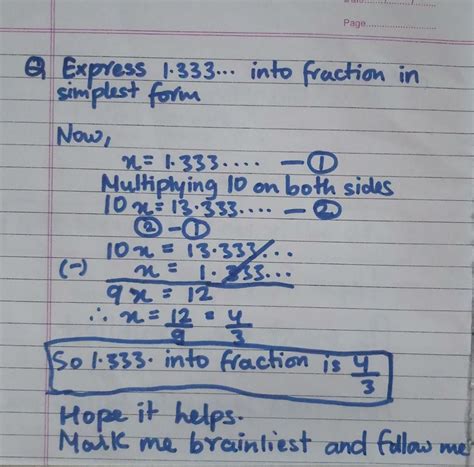 Date
Page
Q Express 1.333... into fraction in
simplest form
Now,
x = 1.333.... — ①
Multiplying 10 on both sides
10x = 13.333.... — ②
② - ①
10x = 13.333...
(-) x = 1.333...
9x = 12
∴ x = 12/9 = 4/3
So 1.333. into fraction is 4/3
Hope it helps.
Mark me brainliest and follow me